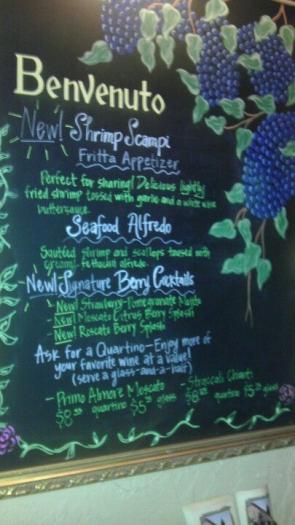 Benvenuto
New! Shrimp Scampi
Fritta Appetizer
Perfect for sharing! Delicious lightly
fried shrimp tossed with garlic and a white wine
buttersauce.
Seafood Alfredo
Sautéed shrimp and scallops tossed with
creamy fettuccini alfredo.
New! Signature Berry Cocktails
- New! Strawberry-Pomegranate Mojito
- New! Moscato Citrus Berry Splash
- New! Roscato Berry Splash
Ask for a Quartino - Enjoy more of
your favorite wine at a value!
(serve a glass-and-a-half)
- Primo Amore Moscato - Straccali Chianti
quartino glass quartino glass